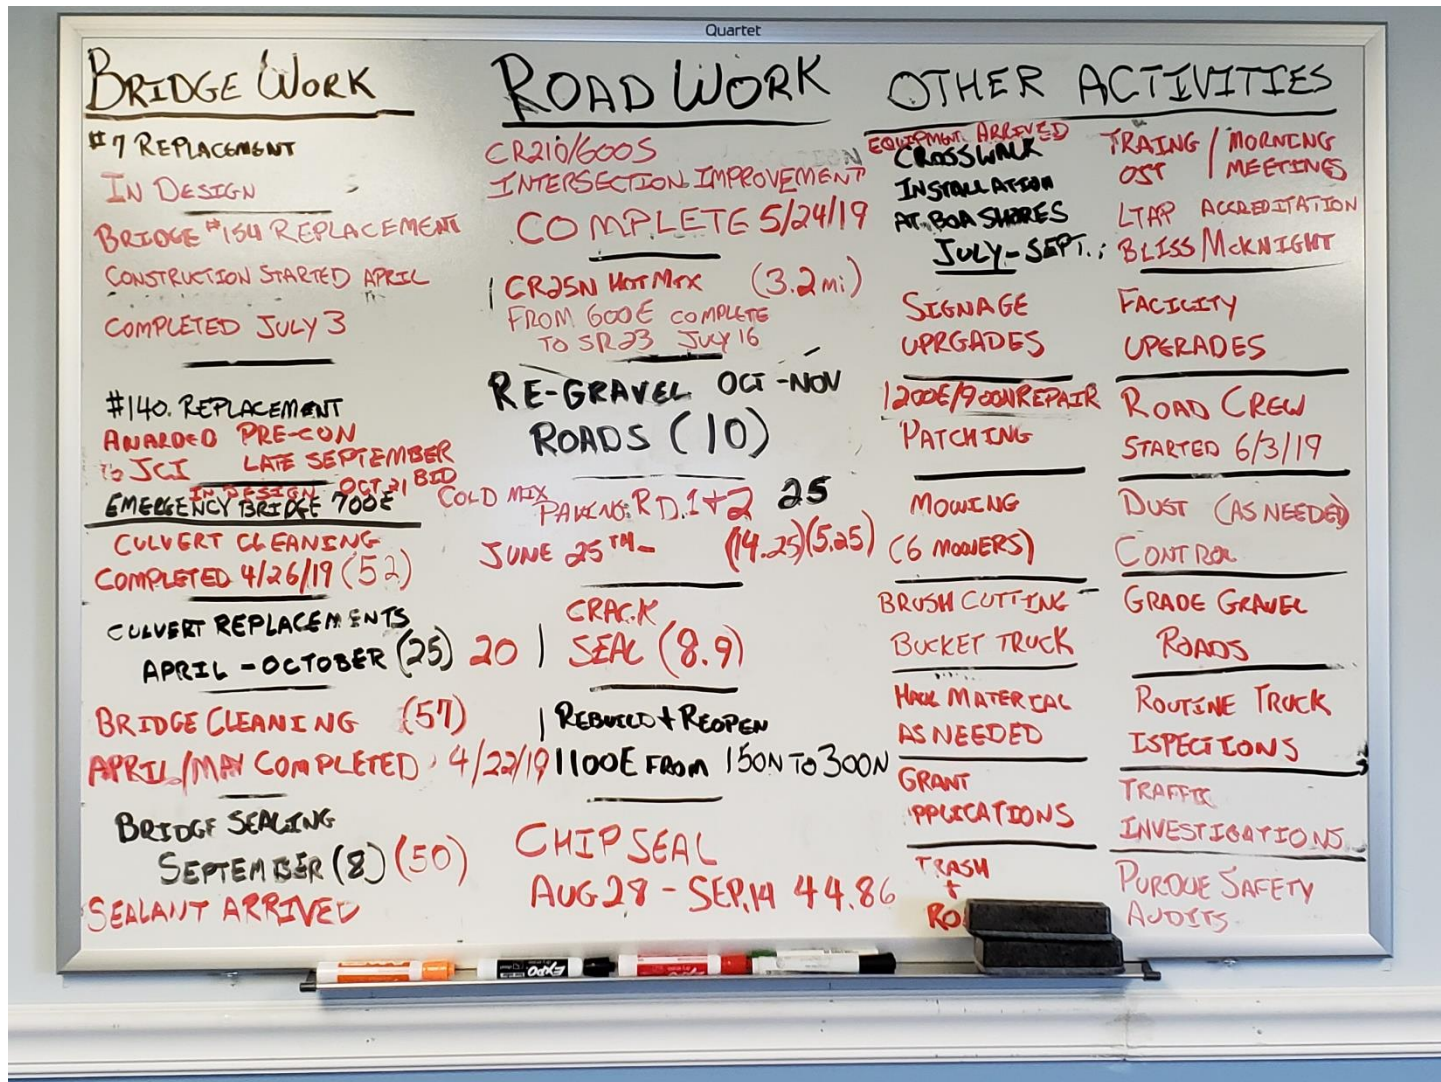 Quartet
BRIDGE WORK
#7 REPLACEMENT
IN DESIGN
BRIDGE #154 REPLACEMENT
CONSTRUCTION STARTED APRIL
COMPLETED JULY 3
#140. REPLACEMENT
AWARDED PRE-CON
TO JCI LATE SEPTEMBER
IN DESIGN OCT 21 BID
EMERGENCY BRIDGE 700E
CULVERT CLEANING
COMPLETED 4/26/19 (52)
CULVERT REPLACEMENTS
APRIL - OCTOBER (25) 20
BRIDGE CLEANING (57)
APRIL/MAY COMPLETED 4/22/19
BRIDGE SEALING
SEPTEMBER (8) (50)
SEALANT ARRIVED
ROAD WORK
CR210/600S
INTERSECTION IMPROVEMENT
COMPLETE 5/24/19
CR25N HOT MIX (3.2 mi)
FROM 600E COMPLETE
TO SR23 JULY 16
RE-GRAVEL OCT-NOV
ROADS (10)
COLD MIX
PAVING: RD. 1+2 25
JUNE 25TH- (14.25)(5.25)
CRACK
SEAL (8.9)
REBUILD + REOPEN
1100E FROM 150N TO 300N
CHIP SEAL
AUG 28 - SEP. 14 44.86
OTHER ACTIVITIES
EQUIPMENT ARRIVED
CROSSWALK
INSTALLATION
AT BOA SHORES
JULY - SEPT.
SIGNAGE
UPRGADES
1200E/900N REPAIR
PATCHING
MOWING
(6 MOWERS)
BRUSH CUTTING
BUCKET TRUCK
HAUL MATERIAL
AS NEEDED
GRANT
APPLICATIONS
TRASH
+
TRAING / MORNING
OST / MEETINGS
LTAP ACCREDITATION
BLISS MCKNIGHT
FACILITY
UPGRADES
ROAD CREW
STARTED 6/3/19
DUST (AS NEEDED)
CONTROL
GRADE GRAVEL
ROADS
ROUTINE TRUCK
ISPECTIONS
TRAFFIC
INVESTIGATIONS
PURDUE SAFETY
AUDITS
EXPO